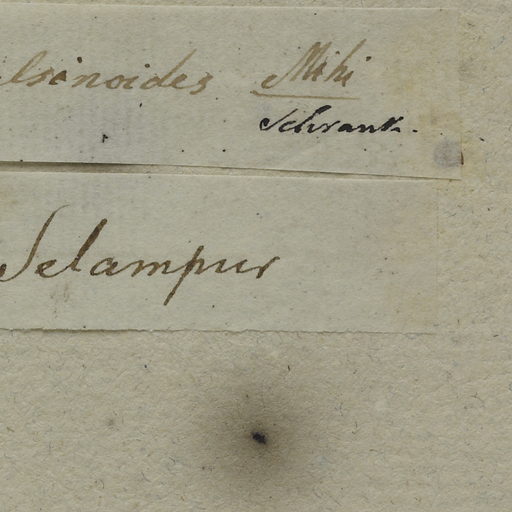 lsinoides Mihi
Schrank.
Selampur